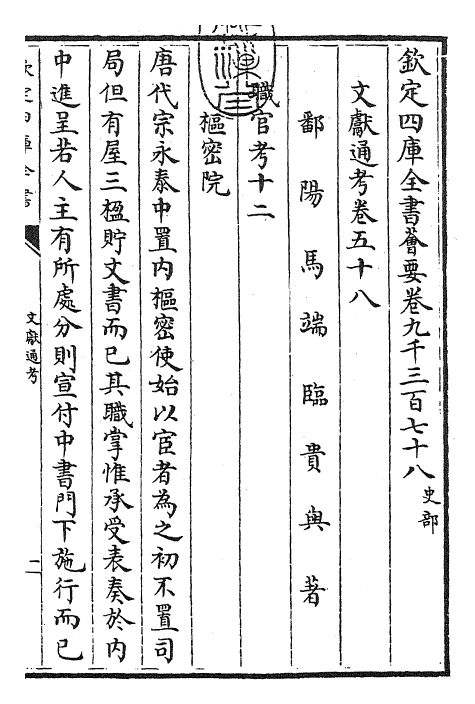 欽定四庫全書薈要卷九千三百七十八 史部
文獻通考卷五十八
鄱陽馬端臨貴與著
職官考十二
樞密院
唐代宗永泰中置内樞密使始以宦者為之初不置司
局但有屋三楹貯文書而已其職掌惟承受表奏於内
中進呈若人主有所處分則宣付中書門下施行而已
欽定四庫全書
文獻通考